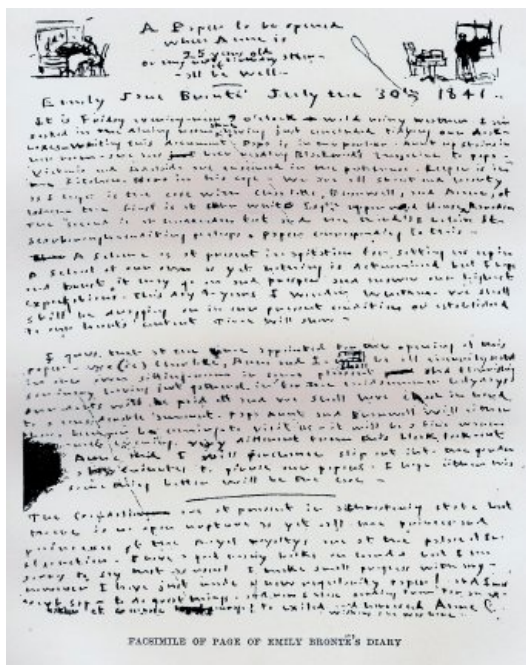 A Paper to be opened
when Anne is
25 years old
or my next birthday after—
—all be well—
Emily Jane Brontë July the 30th 1841.
It is Friday evening—near 9 o'clock—wild rainy weather I am
seated in the dining room having just concluded tidying our desk-
writing this document. Papa is in the parlour. Aunt up stairs in
her room—she has just been reading Blackwood's Magazine to papa—
Victoria and Adelaide are ensconced in the peat-house—Keeper is in
the kitchen—Hero in his cage—We are all stout and hearty
as I hope is the case with Charlotte, Branwell, and Anne, of
whom the first is at John White Esqre upperwood House, Rawden
The second is at Luddenden foot and the third is I believe at
Scarborough—editing perhaps a paper corresponding to this—
A scheme is at present in agitation for setting us up in
a School of our own as yet nothing is determined but I hope
and trust it may go on and prosper and answer our highest
expectations. This day 4-years I wonder whether we shall
still be dragging on in our present condition or established
to our heart's content Time will show—
I guess that at the time appointed for the opening of this
paper—we (ie) Charlotte, Anne and I—shall be all merrily seated
in our own sitting-room in some pleasant
seminary having just gathered in for the midsummer holydays
our debts will be paid off and we shall have cash in hand
to a considerable amount. papa Aunt and Branwell will either
have been or be coming—to visit us—it will be a fine warm
evening. very different from this bleak look-out
Anne and I will perchance slip out into the garden
minutes to peruse our papers. I hope either this
something better will be the case—
The Gondalians are at present in a threatening state but
there is no open rupture as yet—all the princes and
princesses of the royal royaltys are at the palace of In-
struction—I have a good many books on hands but I am
sorry to say that as usual I make small progress with any—
however I have just made a new regularity paper! and I
to do great things—
to exiled and harassed Anne
FACSIMILE OF PAGE OF EMILY BRONTË'S DIARY